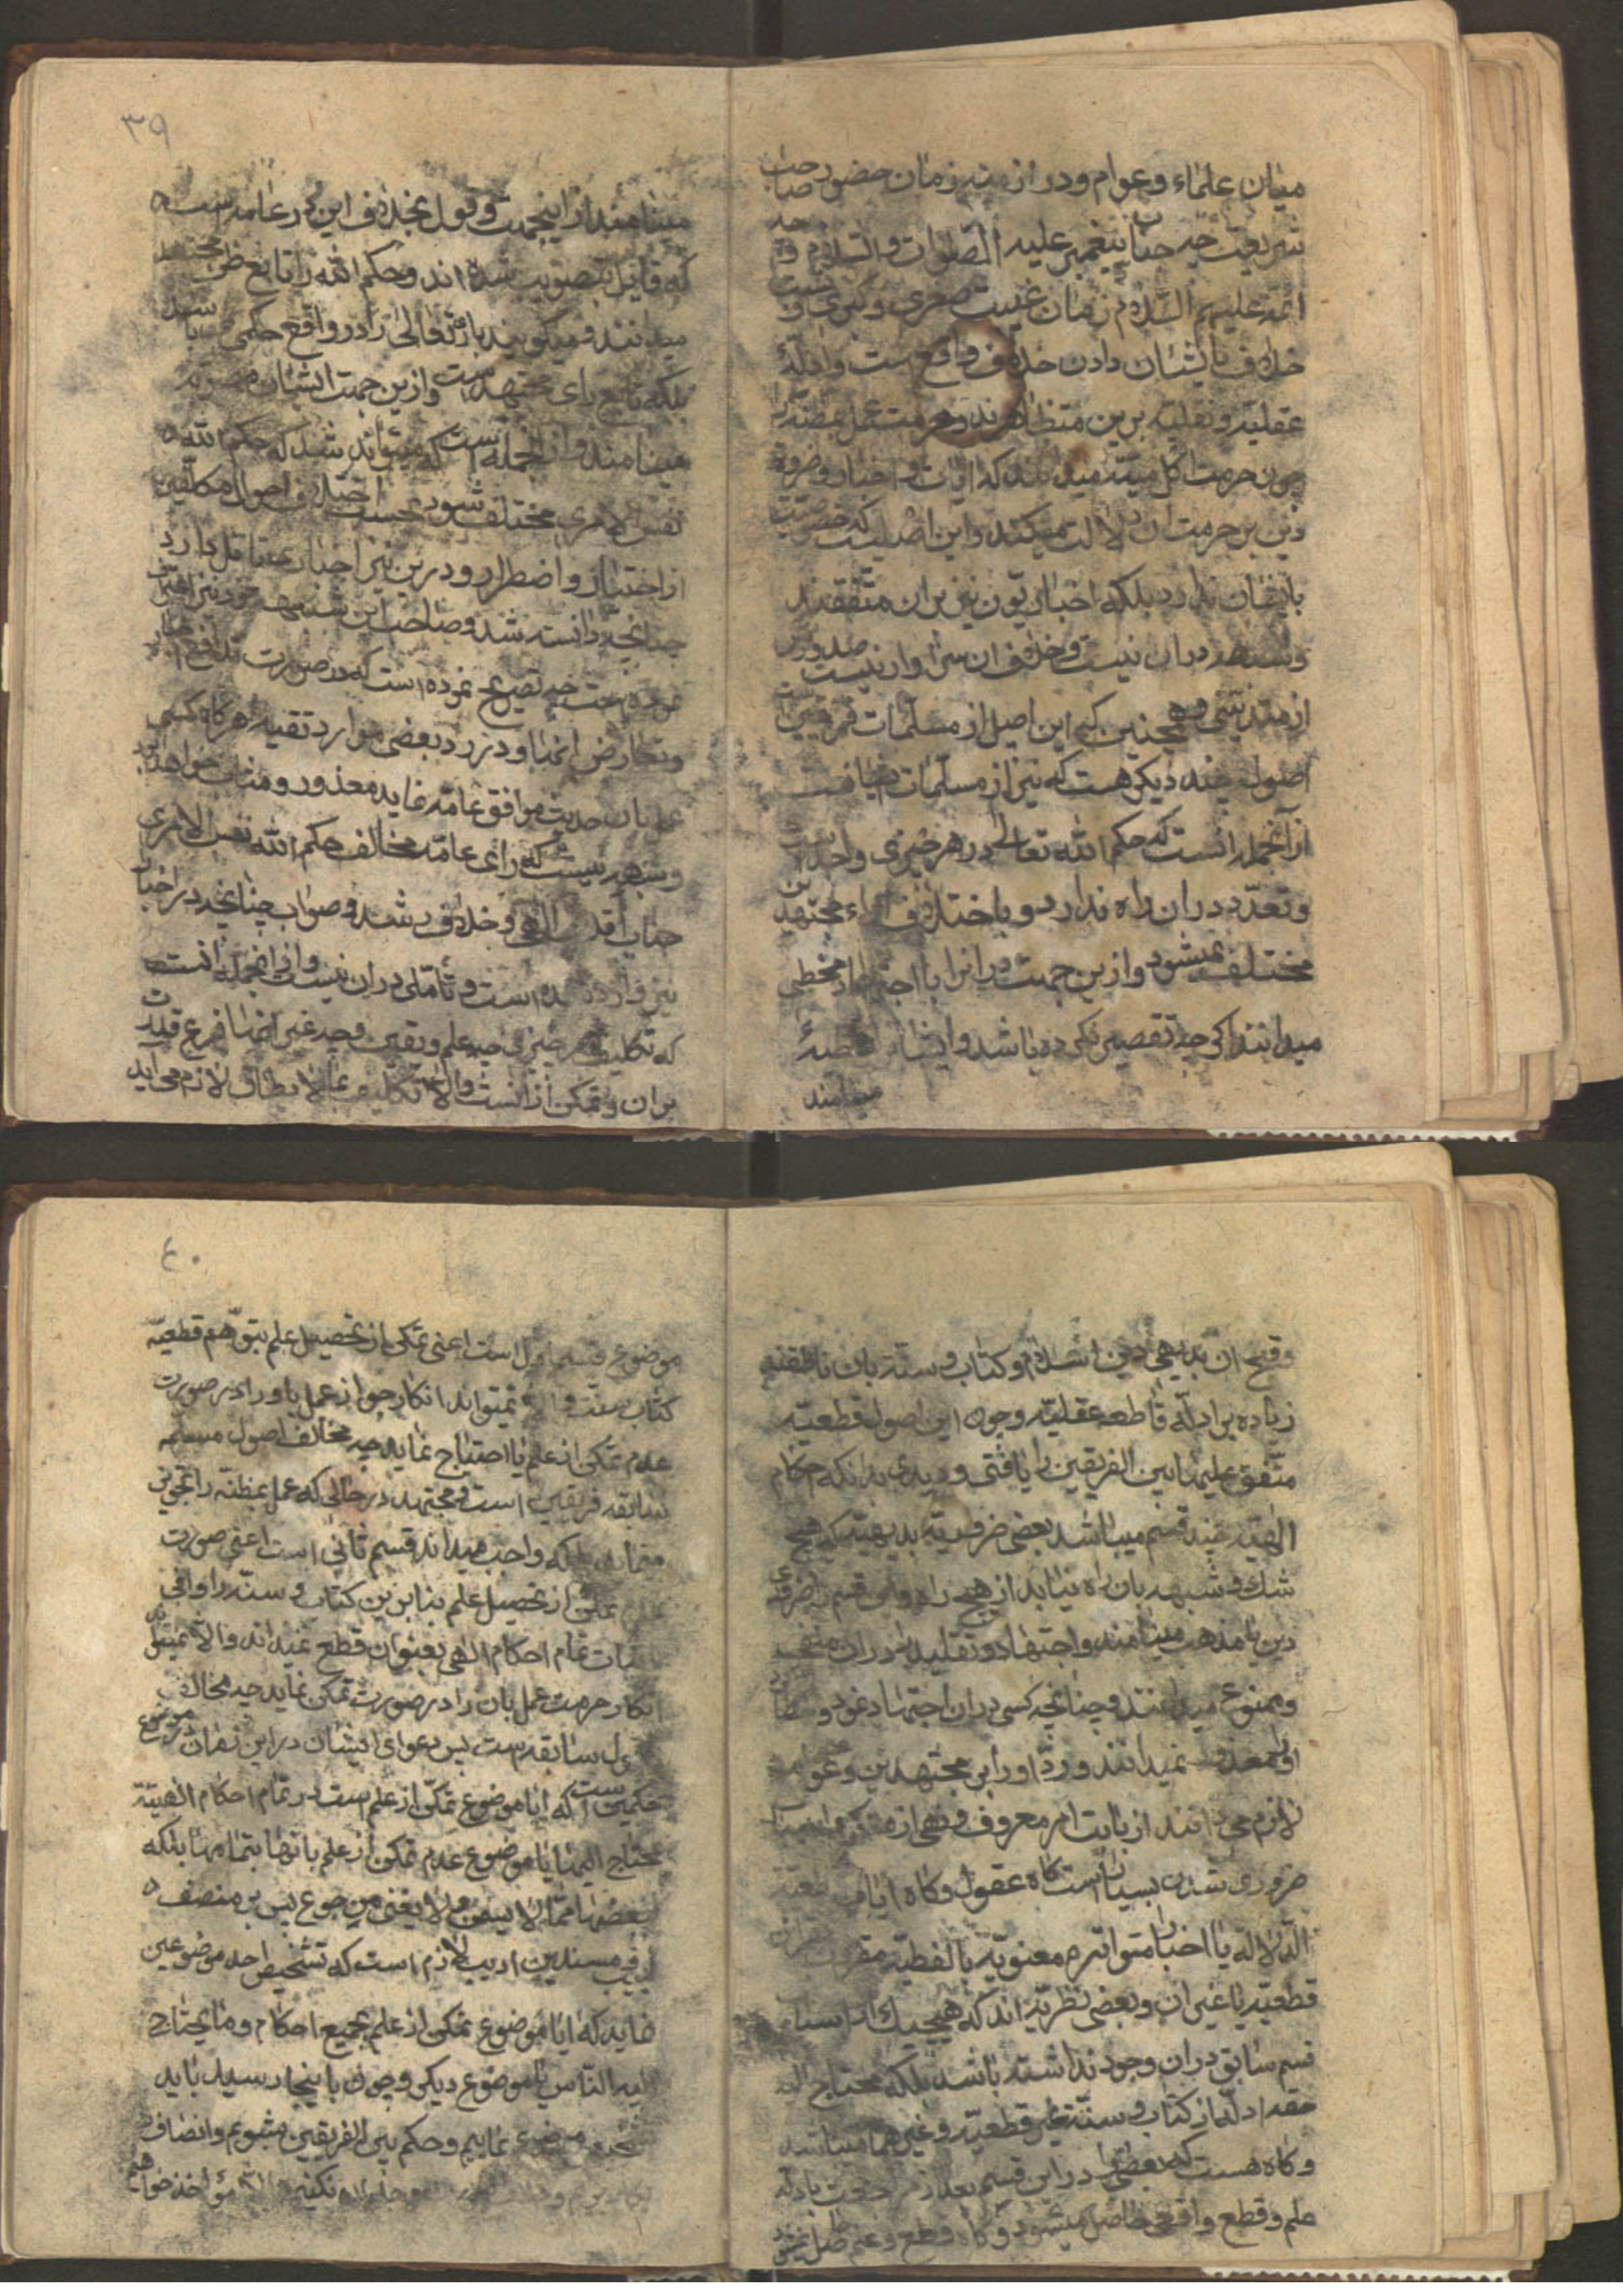 میان علماء و عوام و در ازمنه زمان حضور صاحب
شریعت چه جناب پیغمبر علیه الصلوات والسلام و چه
ائمه علیهم السلام زمان غیبت صغری و کبری نسبت
خلاف بایشان دادن خلاف واقع است وادلهٔ
عقلیه و نقلیه برین متظاهرند و حرمت عمل بمظنه را
چون حرمت اکل میته میدانند که ایات و اخبار و ضروة
دین بر حرمت ان دلالت میکنند واین اصلیست که خصوصیت
بایشان ندارد بلکه اخباریون نیز بران متفقند
وشبهه دران نیست و خلاف ان سزاوار نیست صدورش
از متدینی و همچنین که این اصل از مسلمات فریقین است
اصول چند دیگر هست که نیز از مسلمات
از آنجمله انست که حکم الله تعالی در هر چیزی واحد است
و تعدد دران راه ندارد و باختلاف آراء مجتهدین
مختلف نمیشود وازین جهت در انرا با اجتهاد مخطی
میدانند اگر چه تقصیر نکرده باشد وایشانرا مخطئهٔ
مینامند
٣٩
مینامند ازاینجهت وقول بخلاف این در عامه است
که قایل بتصویب شده اند وحکم الله را تابع ظن مجتهد
میدانند و میگویند باریتعالی را در واقع حکمی باشد
بلکه تابع رای مجتهد است وازین جهت ایشان مصوبه
مینامند واز انجمله است که میتواند شد که حکم الله
نفس الامری مختلف شود بحسب اختلاف احوال مکلفین
از اختیار و اضطرار و درین نیز اخبار
چنانچه دانسته شد و صاحب این شبهه خود نیز
نموده است چه تصریح نموده است که در صورت تدافع اخبار
و تعارض انها و در زد بعضی موارد تقیه هرگاه کسی
عمل بان حدیث موافق عامه نماید معذور و مثاب خواهد بود
وشبهه نیست که رای عامه مخالف حکم الله نفس الامری
جناب اقدس الهی و خلاف رشد و صواب چنانچه در اخبار
نیز وارد شده است و تأملی دران نیست واز انجمله انست
که تکلیف بهر چیزی چه علم و یقین و چه غیر انها فرع قدرت
بران و تمکن از انست والا تکلیف بما لا یطاق لازم می اید
وقبح ان بدیهی دین اسلام و کتاب و سنة بان ناطقند
زیاده بر ادله قاطعه عقلیه وچون این اصول قطعیه
متفق علیها بین الفریقین را یافتی و دیدی بدانکه احکام
الهیه چند قسم میباشد بعضی ضروریه بدیهیه که هیچ
شک و شبهه بان راه نیابد از هیچ راه و این قسم را ضروری
دین یا مذهب مینامند واجتهاد و تقلید را دران منع
و ممنوع میدانند و چنانچه کسی دران اجتهاد نمود و خطا
اورا معذور نمیدانند و رد او را بر مجتهدین و عوام
لازم می دانند از بابت امر معروف و نهی از منکر
ضروری شدن بسیار است گاه عقول و گاه ایات قطعیة
الدلالة یا اخبار متواتره معنویه یا لفظیه مقرون بقراین
قطعیه یا غیر ان و بعضی نظریه اند که هیچیک از اسباب
قسم سابق دران وجود نداشته باشد بلکه محتاج الی
ادله از کتاب و سنة غیر قطعیه و غیرهما میباشد
و گاه هست که بعضی را در این قسم بعد از رجعت بادله
علم و قطع واقعی حاصل میشود و گاه قطع و علم حاصل نمیشود
٤٠
موضوع قسم اول است اعنی تمکن از تحصیل علم بتوهم قطعیه
کتاب سنت والا نمیتواند انکار جواز عمل باورا در صورت
عدم تمکن از علم یا احتیاج نماید چه مخالف اصول مسلمه
سابقه فریقین است و مجتهد در حالی که عمل بمظنه را تجویز
مینماید بلکه واجب میداند قسم ثانی است اعنی صورت
عدم تمکن از تحصیل علم بنابرین کتاب و سنة را وافی
باثبات تمام احکام الهی بعنوان قطع نمیداند والا نمیتواند
انکار حرمت عمل بان را در صورت تمکن نماید چه مخالف
اصول سابقه است پس دعوای ایشان در این زمان در موضوع
حکمین است که ایا موضوع تمکن از علم است در تمام احکام الهیة
محتاج الیها یا موضوع عدم تمکن از علم بانها بتمامها بلکه
بعضها مما لا یسمن ولا یغنی من جوع پس بر منصف
لبیب و مسندین ادیب لازم است که تشخیص احد موضوعین
نماید که ایا موضوع تمکن از علم بجمیع احکام و ما یحتاج
الیه الناس یا موضوع دیگر و چون باینجا رسید باید
موضوع نماییم و حکم بین الفریقین بشویم وانصاف
نکنیم والا مؤاخذ خواهیم